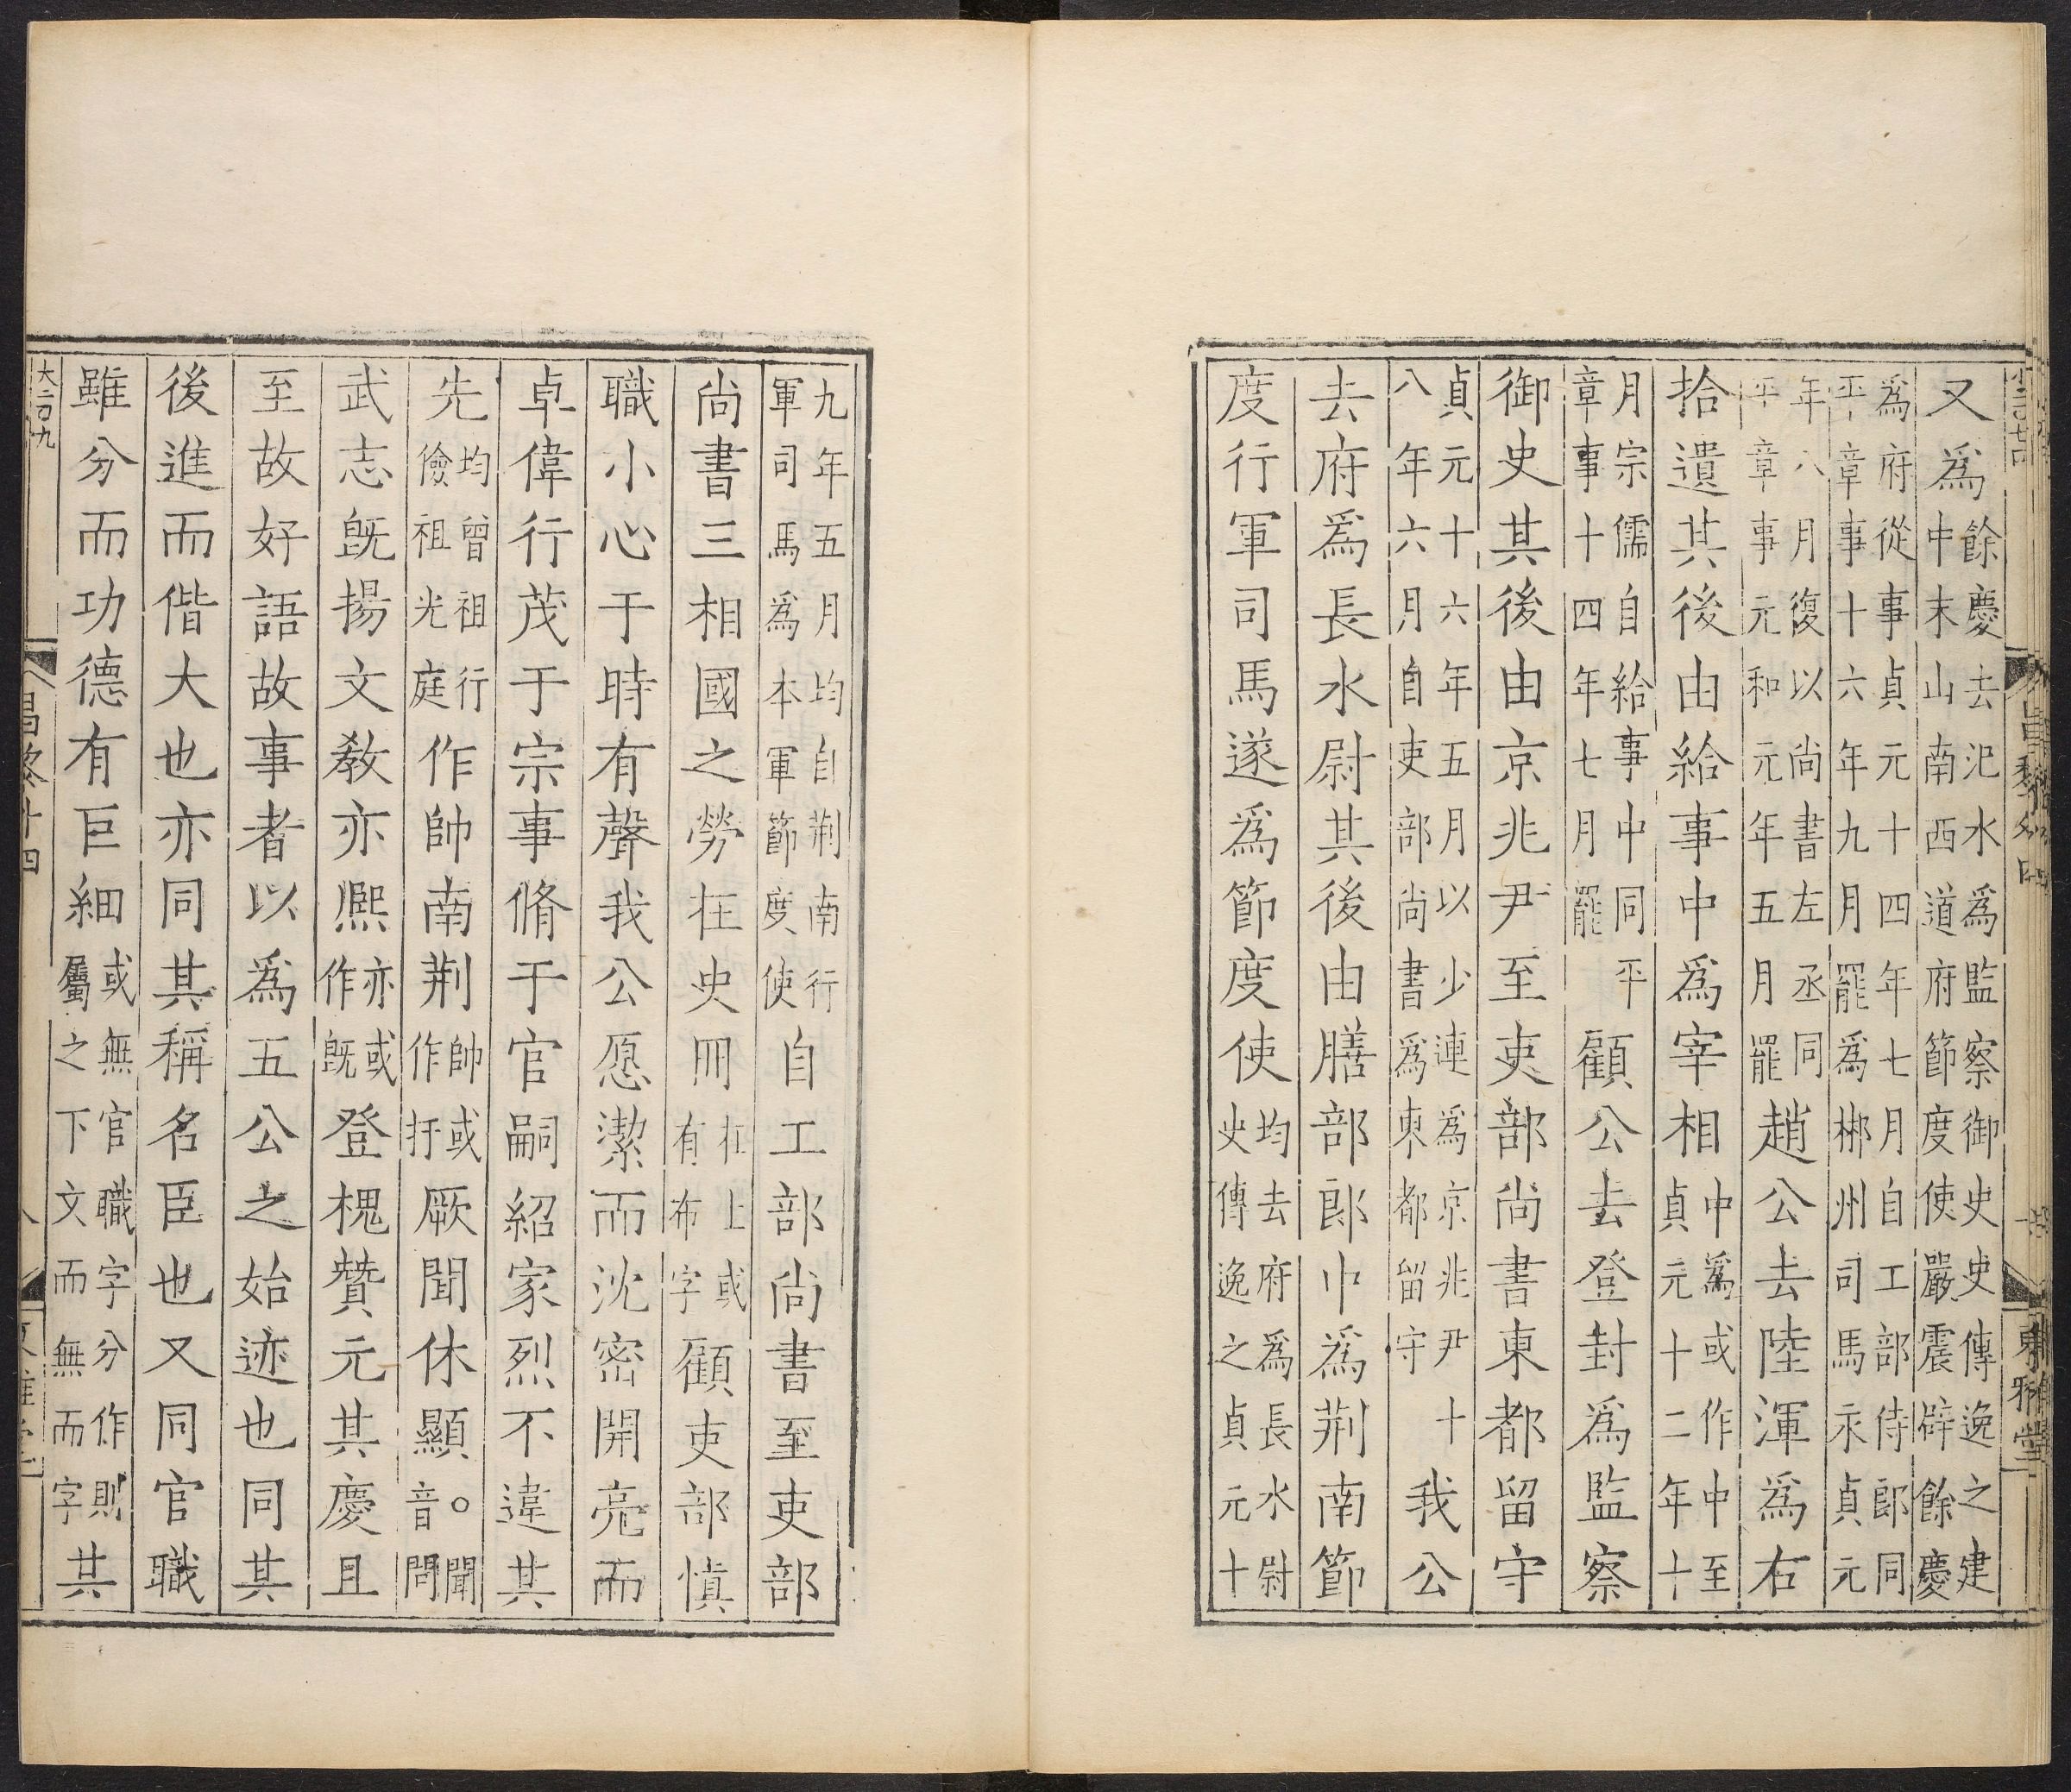 又爲餘慶去汜水爲監察御史史傳逸之建
中末山南西道府節度使嚴震辟餘慶
爲府從事貞元十四年七月自工部侍郎同
平章事十六年九月罷爲郴州司馬永貞元
年八月復以尚書左丞同
平章事元和元年五月罷趙公去陸渾爲右
拾遺其後由給事中爲宰相中爲或作中至
貞元十二年十
月宗儒自給事中同平
章事十四年七月罷顧公去登封爲監察
御史其後由京兆尹至吏部尚書東都留守
貞元十六年五月以少連爲京兆尹十
八年六月自吏部尚書爲東都留守我公
去府爲長水尉其後由膳部郎中爲荆南節
度行軍司馬遂爲節度使均去府爲長水尉
史傳逸之貞元十
東雅堂
九年五月均自荆南行
軍司馬爲本軍節度使自工部尚書至吏部
尚書三相國之勞在史冊在上或
有布字顧吏部慎
職小心于時有聲我公愿潔而沈密開亮而
卓偉行茂于宗事脩于官嗣紹家烈不違其
先均曾祖行
儉祖光庭作帥南荆帥或
作扞厥聞休顯○聞
音問
武志旣揚文敎亦熙亦或
作旣登槐贊元其慶且
至故好語故事者以爲五公之始迹也同其
後進而偕大也亦同其稱名臣也又同官職
雖分而功德有巨細或無官職字分作則
屬之下文而無而字其
大二百九
昌黎十四